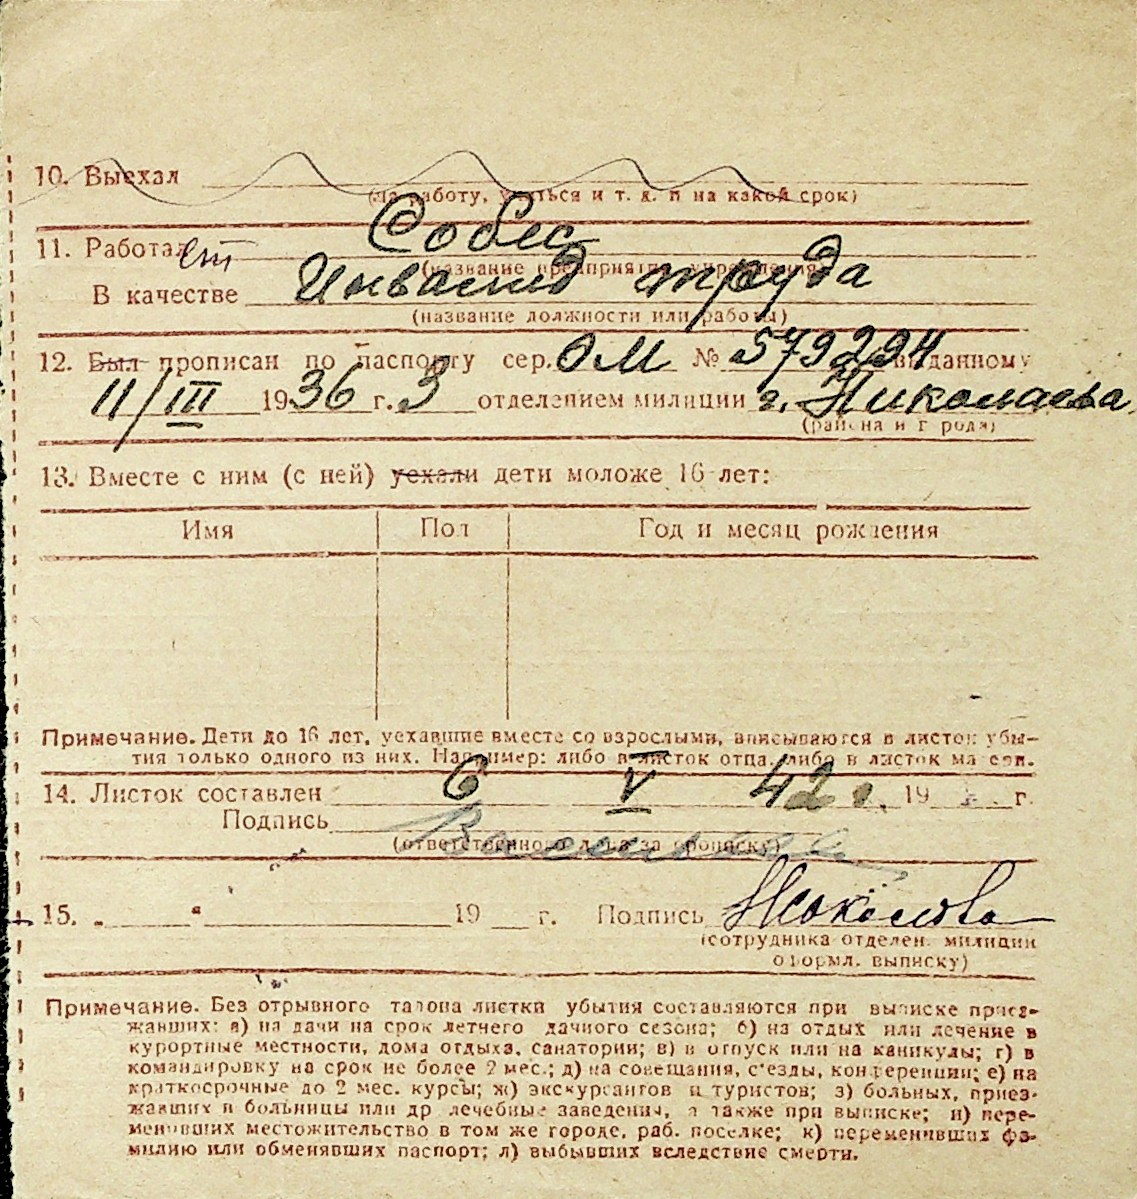 10. Выехал
(на работу, учиться и т. д. и на какой срок)
11. Работает Собес
(название предприятия, учреждения)
В качестве Инвалид труда
(название должности или работы)
12. Был прописан по паспорту сер. ОМ № 579294 выданному
11/III 1936 г. 3 отделением милиции г. Николаева
(района и города)
13. Вместе с ним (с ней) уехали дети моложе 16 лет:
Имя Пол Год и месяц рождения
Примечание. Дети до 16 лет, уехавшие вместе со взрослыми, вписываются в листок убы-
тия только одного из них. Например: либо в листок отца, либо в листок матери.
14. Листок составлен 6 V 42 г. 19 г.
Подпись
(ответственного лица за прописку)
15. " " 19 г. Подпись
(сотрудника отделен. милиции
оформл. выписку)
Примечание. Без отрывного талона листки убытия составляются при выписке приез-
жавших: а) на дачи на срок летнего дачного сезона; б) на отдых или лечение в
курортные местности, дома отдыха, санатории; в) в отпуск или на каникулы; г) в
командировку на срок не более 2 мес.; д) на совещания, с'езды, конференции; е) на
краткосрочные до 2 мес. курсы; ж) экскурсантов и туристов; з) больных, приез-
жавших в больницы или др лечебные заведения, а также при выписке; и) пере-
менивших местожительство в том же городе, раб. поселке; к) переменивших фа-
милию или обменявших паспорт; л) выбывших вследствие смерти.